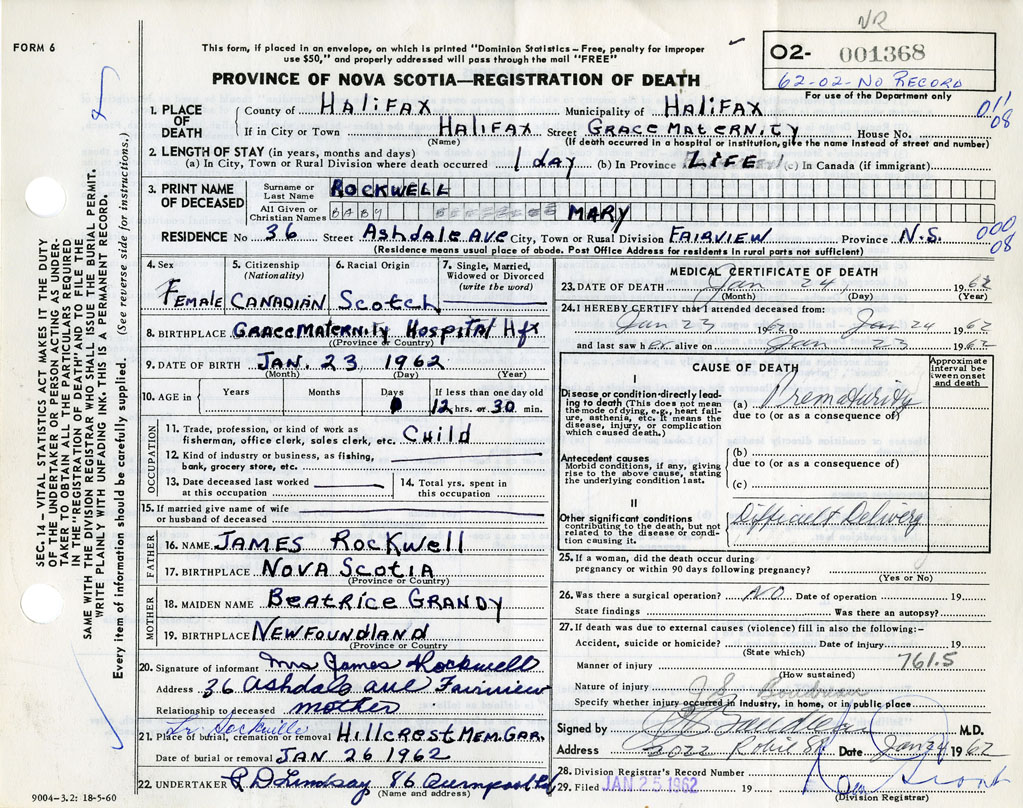 NR
FORM 6
This form, if placed in an envelope, on which is printed "Dominion Statistics – Free, penalty for improper
use $50," and properly addressed will pass through the mail "FREE"
PROVINCE OF NOVA SCOTIA—REGISTRATION OF DEATH
02- 001368
62-02-No Record
For use of the Department only
SEC. 14 – VITAL STATISTICS ACT MAKES IT THE DUTY
OF THE UNDERTAKER OR PERSON ACTING AS UNDER-
TAKER TO OBTAIN ALL THE PARTICULARS REQUIRED
IN THE "REGISTRATION OF DEATH" AND TO FILE THE
SAME WITH THE DIVISION REGISTRAR WHO SHALL ISSUE THE BURIAL PERMIT.
WRITE PLAINLY WITH UNFADING INK. THIS IS A PERMANENT RECORD.
Every item of information should be carefully supplied. (See reverse side for instructions.)
1. PLACE OF DEATH
County of Halifax Municipality of Halifax
011
08
If in City or Town Halifax Street Grace Maternity House No.
(Name) (If death occurred in a hospital or institution, give the name instead of street and number)
2. LENGTH OF STAY (in years, months and days)
(a) In City, Town or Rural Division where death occurred 1 day (b) In Province Life (c) In Canada (if immigrant)
3. PRINT NAME OF DECEASED
Surname or Last Name ROCKWELL
All Given or Christian Names BABY MARY
RESIDENCE No 36 Street Ashdale Ave City, Town or Rural Division FAIRVIEW Province N.S.
000
08
(Residence means usual place of abode. Post Office Address for residents in rural parts not sufficient)
4. Sex Female
5. Citizenship (Nationality) CANADIAN
6. Racial Origin Scotch
7. Single, Married, Widowed or Divorced (write the word)
8. BIRTHPLACE Grace Maternity Hospital Hfx
(Province or Country)
9. DATE OF BIRTH JAN. 23 1962
(Month) (Day) (Year)
10. AGE in Years Months Days If less than one day old
12 hrs. or 30 min.
OCCUPATION
11. Trade, profession, or kind of work as
fisherman, office clerk, sales clerk, etc. Child
12. Kind of industry or business, as fishing,
bank, grocery store, etc.
13. Date deceased last worked
at this occupation
14. Total yrs. spent in
this occupation
15. If married give name of wife
or husband of deceased
FATHER
16. NAME JAMES Rockwell
17. BIRTHPLACE NOVA SCOTIA
(Province or Country)
MOTHER
18. MAIDEN NAME Beatrice GRANDY
19. BIRTHPLACE NEWFOUNDLAND
(Province or Country
20. Signature of informant Mrs James Rockwell
Address 36 Ashdale ave Fairview
Relationship to deceased mother
Lr Sackville
21. Place of burial, cremation or removal Hillcrest Mem. Gar.
Date of burial or removal JAN 26 1962
22. UNDERTAKER R D Lindsay 86
(Name and address)
9004-3.2: 18-5-60
MEDICAL CERTIFICATE OF DEATH
23. DATE OF DEATH Jan 24 1962
(Month) (Day) (Year)
24. I HEREBY CERTIFY that I attended deceased from:
Jan 23 1962 to Jan 24 1962
and last saw her alive on Jan 23 1962
CAUSE OF DEATH
Approximate Interval between onset and death
I
Disease or condition directly lead-
ing to death (This does not mean
the mode of dying, e.g., heart fail-
ure, asthenia, etc. It means the
disease, injury, or complication
which caused death.)
(a) Prematurity
due to (or as a consequence of)
Antecedent causes
Morbid conditions, if any, giving
rise to the above cause, stating
the underlying condition last.
(b)
due to (or as a consequence of)
(c)
II
Other significant conditions
contributing to the death, but not
related to the disease or condi-
tion causing it.
Difficult Delivery
25. If a woman, did the death occur during
pregnancy or within 90 days following pregnancy?
(Yes or No)
26. Was there a surgical operation? NO Date of operation 19
State findings Was there an autopsy?
27. If death was due to external causes (violence) fill in also the following:–
Accident, suicide or homicide? Date of injury 19
(State which)
761.5
Manner of injury
(How sustained)
Nature of injury
Specify whether injury occurred in industry, in home, or in public place
Signed by M.D.
Address Robie St Date Jan 24 1962
28. Division Registrar's Record Number
29. Filed JAN 25 1962 19
(Division Registrar)